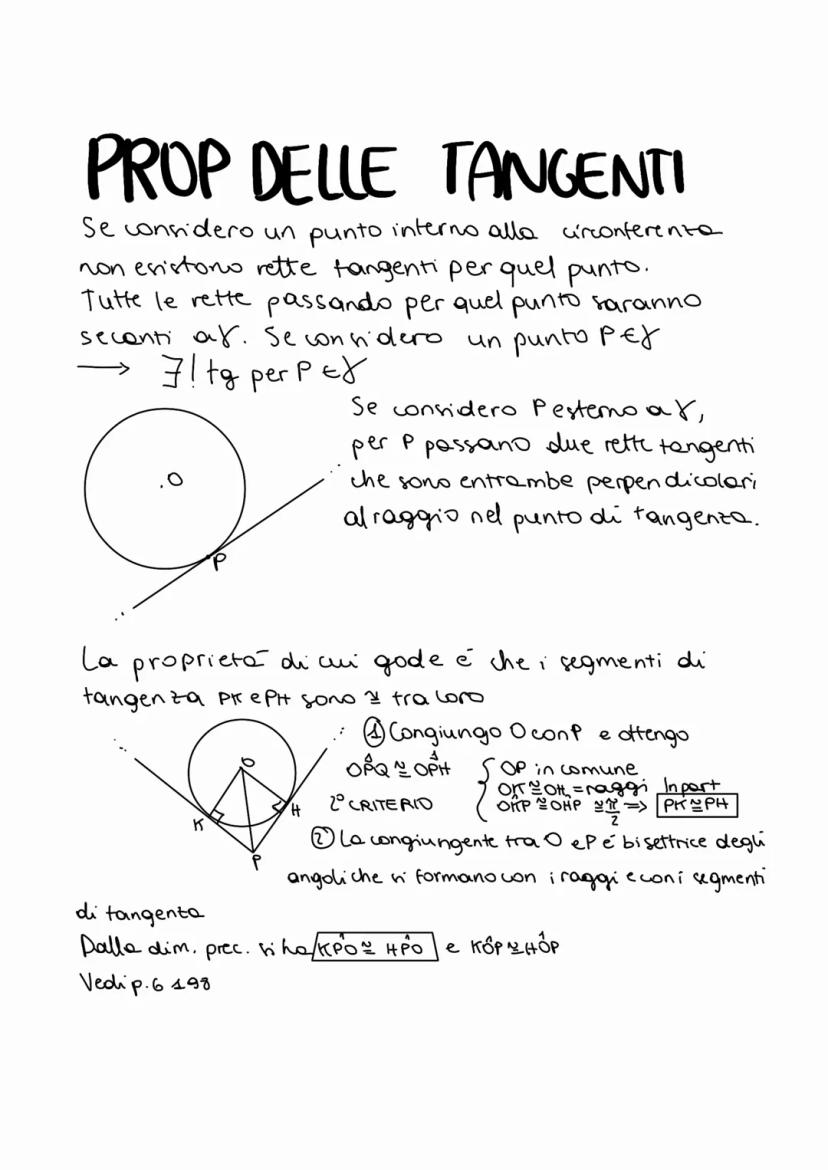 PROP DELLE TANGENTI
Se considero un punto interno alla circonferenza
non esistono rette tangenti per quel punto.
Tutte le rette passando per quel punto saranno
secanti a γ. Se considero un punto P ∈ γ
⟶ ∃! tg per P ∈ γ
Se considero P esterno a γ,
per P passano due rette tangenti
che sono entrambe perpendicolari
al raggio nel punto di tangenza.
.O
P
La proprietà di cui gode è che i segmenti di
tangenza PK e PH sono ≅ tra loro
① Congiungo O con P e ottengo
OP̂Q ≅ OP̂H { OP in comune
OK ≅ OH = raggi In part
2° CRITERIO OK̂P ≅ OĤP ≅ π/2 ⟹ PK ≅ PH
O
K
H
P
② La congiungente tra O e P è bisettrice degli
angoli che si formano con i raggi e con i segmenti
di tangenta
Dalla dim. prec. si ha KP̂O ≅ HP̂O e KÔP ≅ HÔP
Vedi p. 6 198